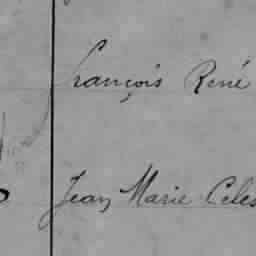 François René
Jean Marie Celes